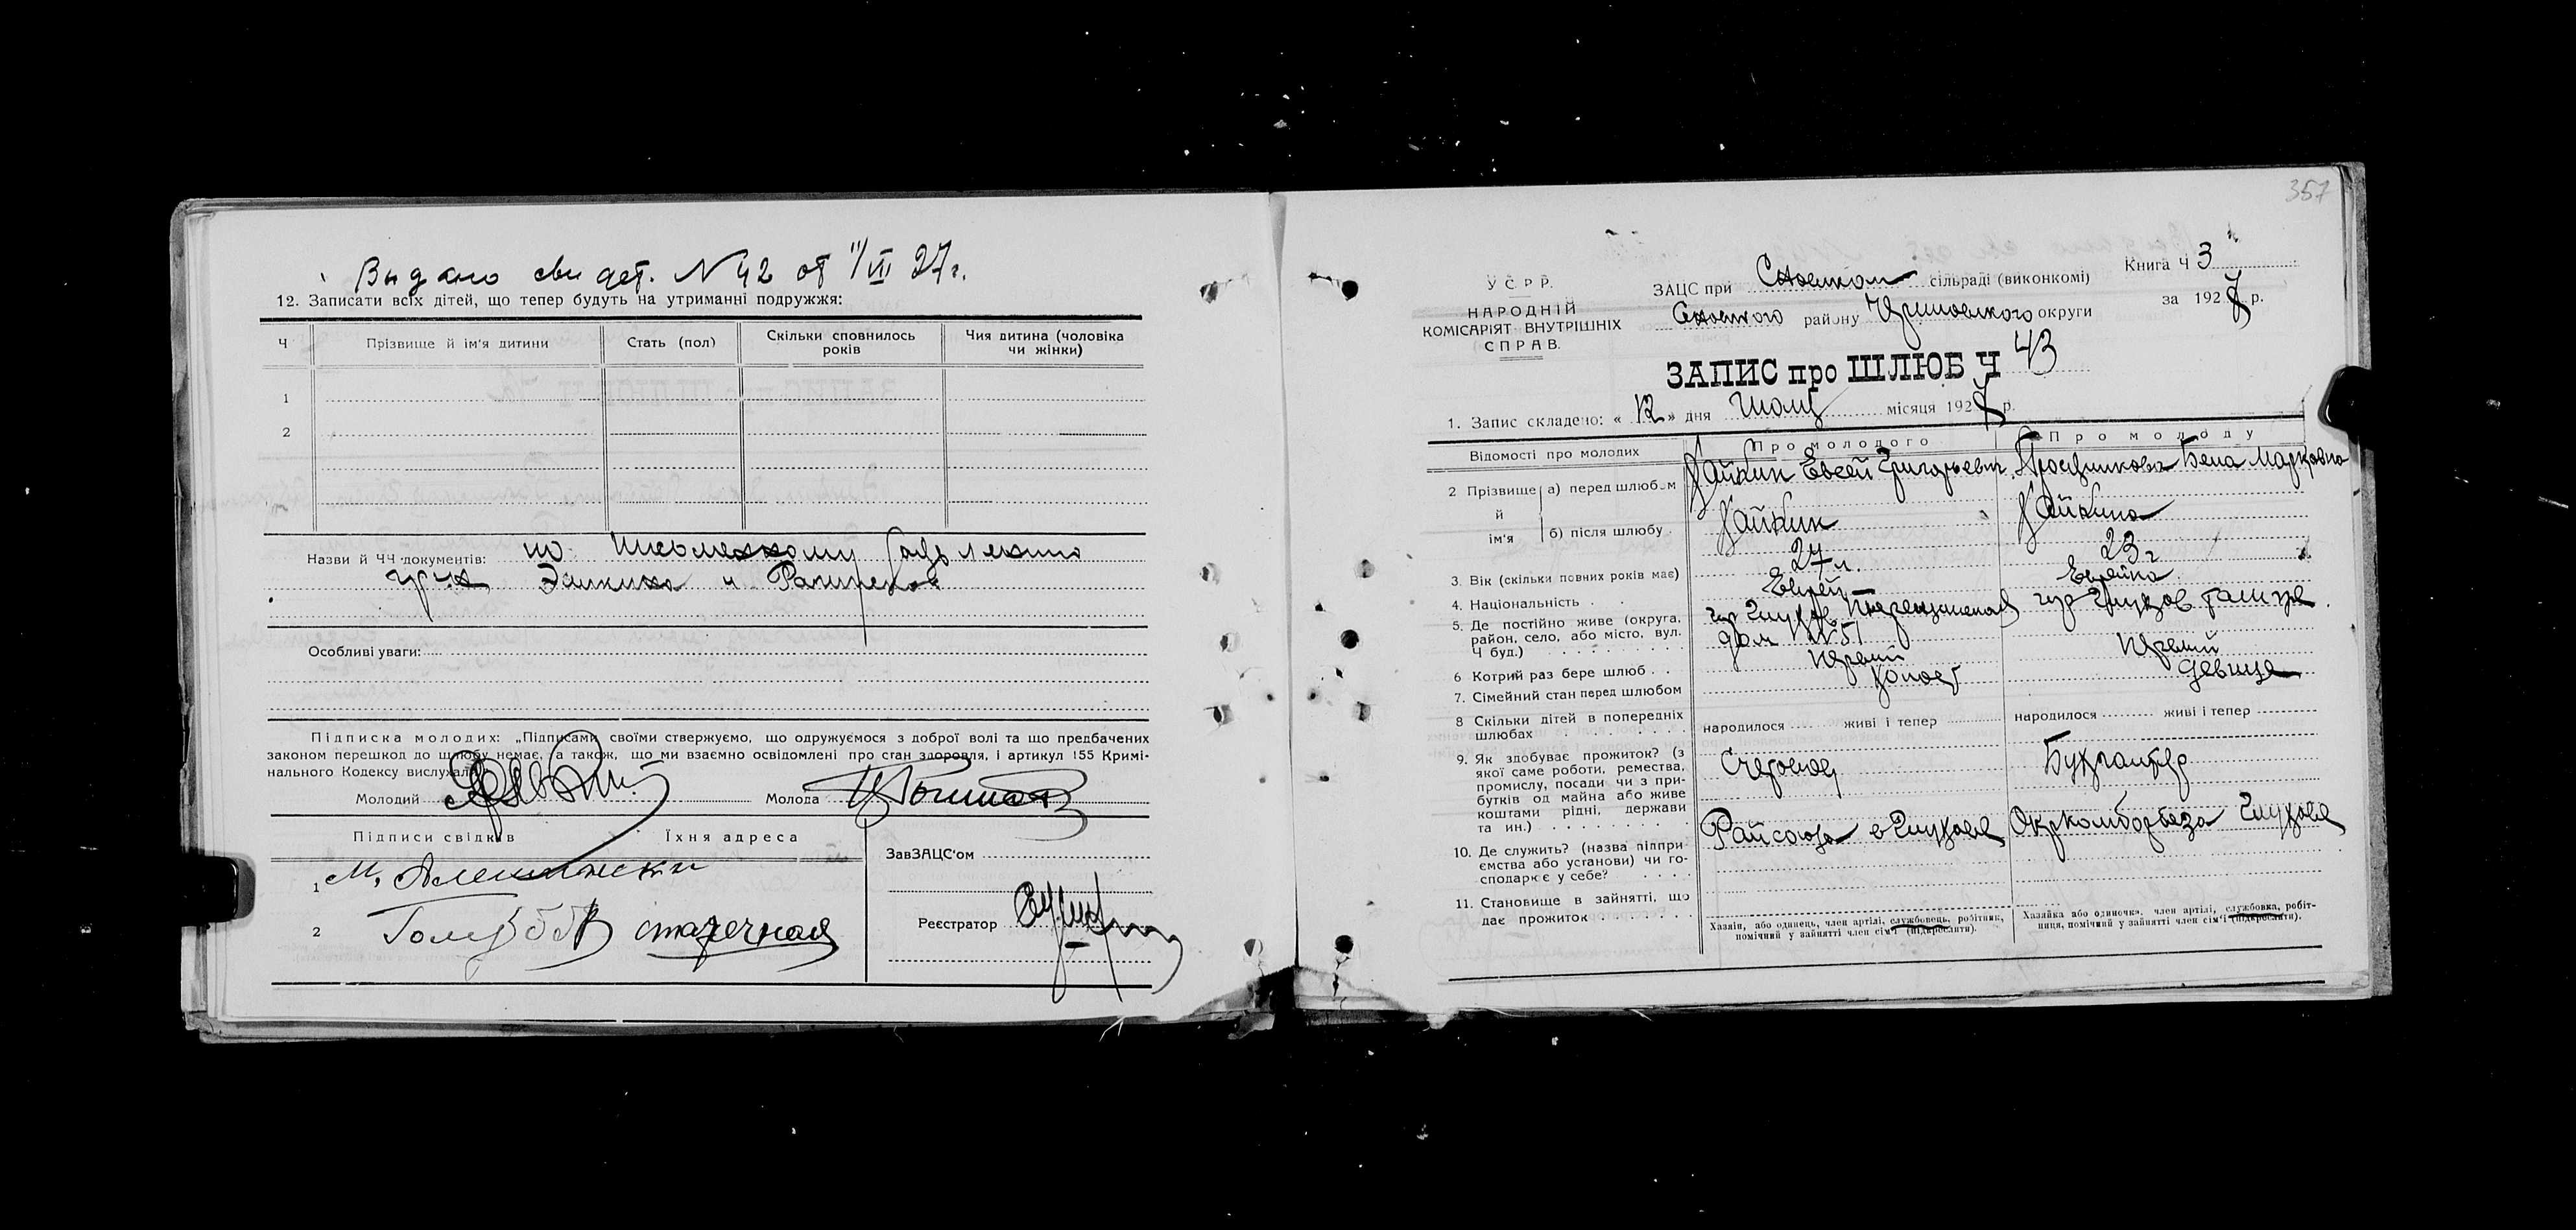 Выдано свидет. N 42 от 11/VII 27 г.
12. Записати всіх дітей, що тепер будуть на утриманні подружжя:
Ч Прізвище й ім'я дитини Стать (пол) Скільки сповнилось років Чия дитина (чоловіка чи жінки)
1
2
Назви й ЧЧ документів: по письменному
гр.н и
Особливі уваги:
Підписка молодих: „Підписами своїми стверджуємо, що одружуємося з доброї волі та що предбачених
законом перешкод до шлюбу немає, а також, що ми взаємно освідомлені про стан здоровля, і артикул 155 Кримі-
нального Кодексу вислухали
Молодий Молода
Підписи свідків Їхня адреса
ЗавЗАЦС'ом
1 М.
2
Реєстратор
357
У С Р Р.
НАРОДНІЙ
КОМІСАРІЯТ ВНУТРІШНІХ
СПРАВ.
ЗАЦС при Сновском сільраді (виконкомі)
Сновского району округи
Книга Ч 3
за 1927 р.
ЗАПИС про ШЛЮБ Ч 43
1. Запис складено: « 12 » дня Июля місяця 1927 р.
Відомості про молодих Про молодого Про молоду
2 Прізвище й ім'я а) перед шлюбом Хайкин Евсей Григорьевич Бела Марковна
б) після шлюбу Хайкин Хайкина
3. Вік (скільки повних років має) 27 л. 23 г
4. Національність Еврей Еврейка
5. Де постійно живе (округа, район, село, або місто, вул. Ч буд.) гор Глухов дом N 51 гор Глухов
6 Котрий раз бере шлюб первый первый
7. Сімейний стан перед шлюбом холост девица
8 Скільки дітей в попередніх шлюбах народилося живі і тепер народилося живі і тепер
9. Як здобуває прожиток? (з якої саме роботи, ремества, промислу, посади чи з прибутків од майна або живе коштами рідні, держави та ин.) Счетовод Бухгалтер
10. Де служить? (назва підприємства або установи) чи господарює у себе? Райсоюза в Глухове Глухове
11. Становище в зайнятті, що дає прожиток
Хазяїн, або одинець, член артілі, службовець, робітник, помічний у зайнятті член сім'ї (підкреслити).
Хазяйка або одиночка, член артілі, службовка, робітниця, помічний у зайнятті член сім'ї (підкреслити).